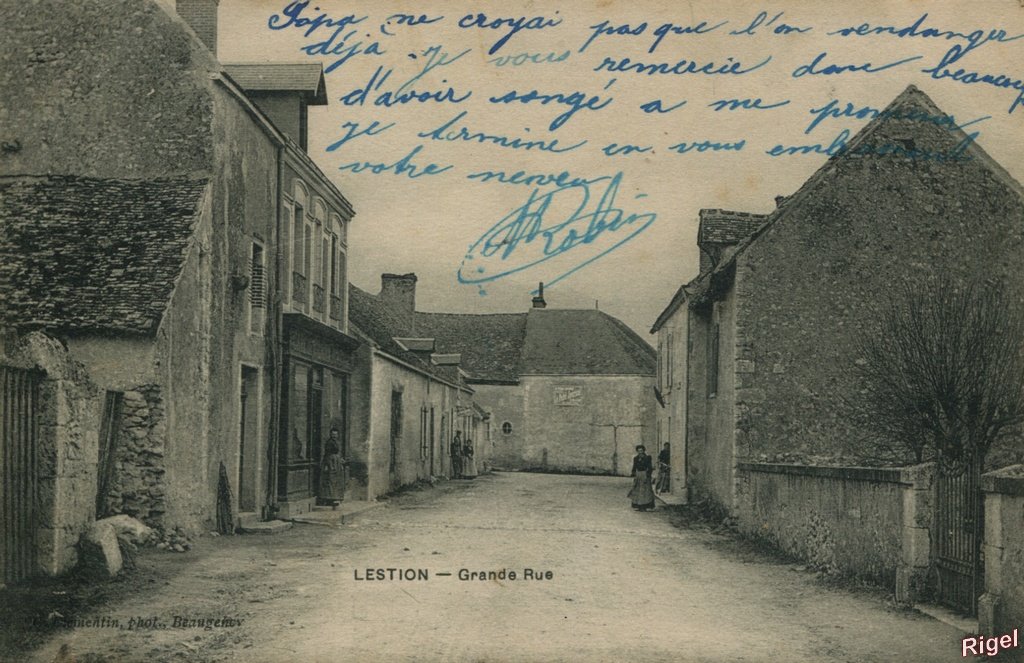 Papa ne croyai pas que l'on vendanger
déjà je vous remercie donc beaucoup
d'avoir songé a me
je termine en vous embrassant
votre neveu
Robin
LESTION — Grande Rue
Clementin, phot., Beaugency
Rigel